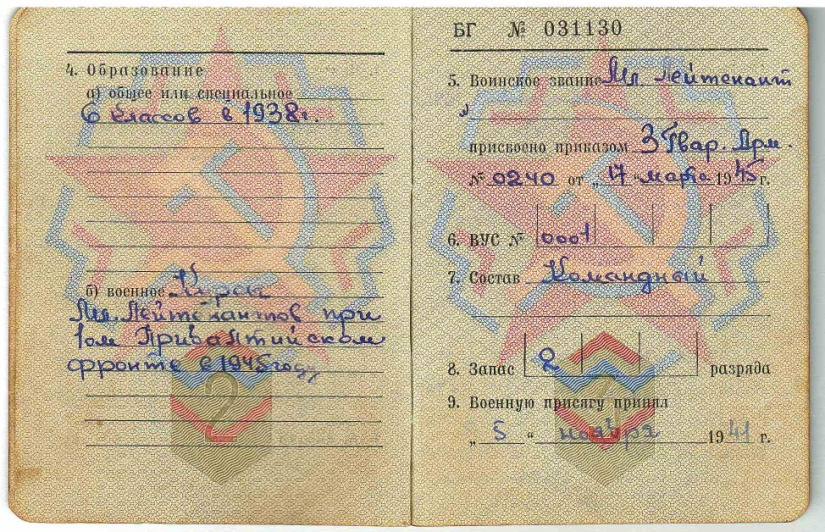 4. Образование
а) общее или специальное
6 классов в 1938г.
б) военное Курсы
Мл. Лейтенантов при
1ом Прибалтийском
фронте в 1945 году
2
БГ № 031130
5. Воинское звание Мл. Лейтенант
присвоено приказом 3 Гвар. Арм.
№ 0240 от „17“ марта 1945 г.
6. ВУС № 0001
7. Состав Командный
8. Запас 2 разряда
9. Военную присягу принял
„5“ ноября 1941 г.